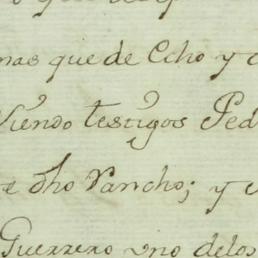 mas que de Ccho y
Viendo testigos Ped
dho Rancho; y
Guerrero uno delos